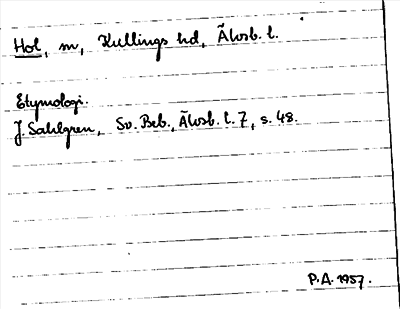 Hol, m, Kullings hd, Älvsb. l.
Etymologi.
J. Sahlgren, Sv. Beb., Älvsb. l. 7, s. 48.
P.A. 1957.